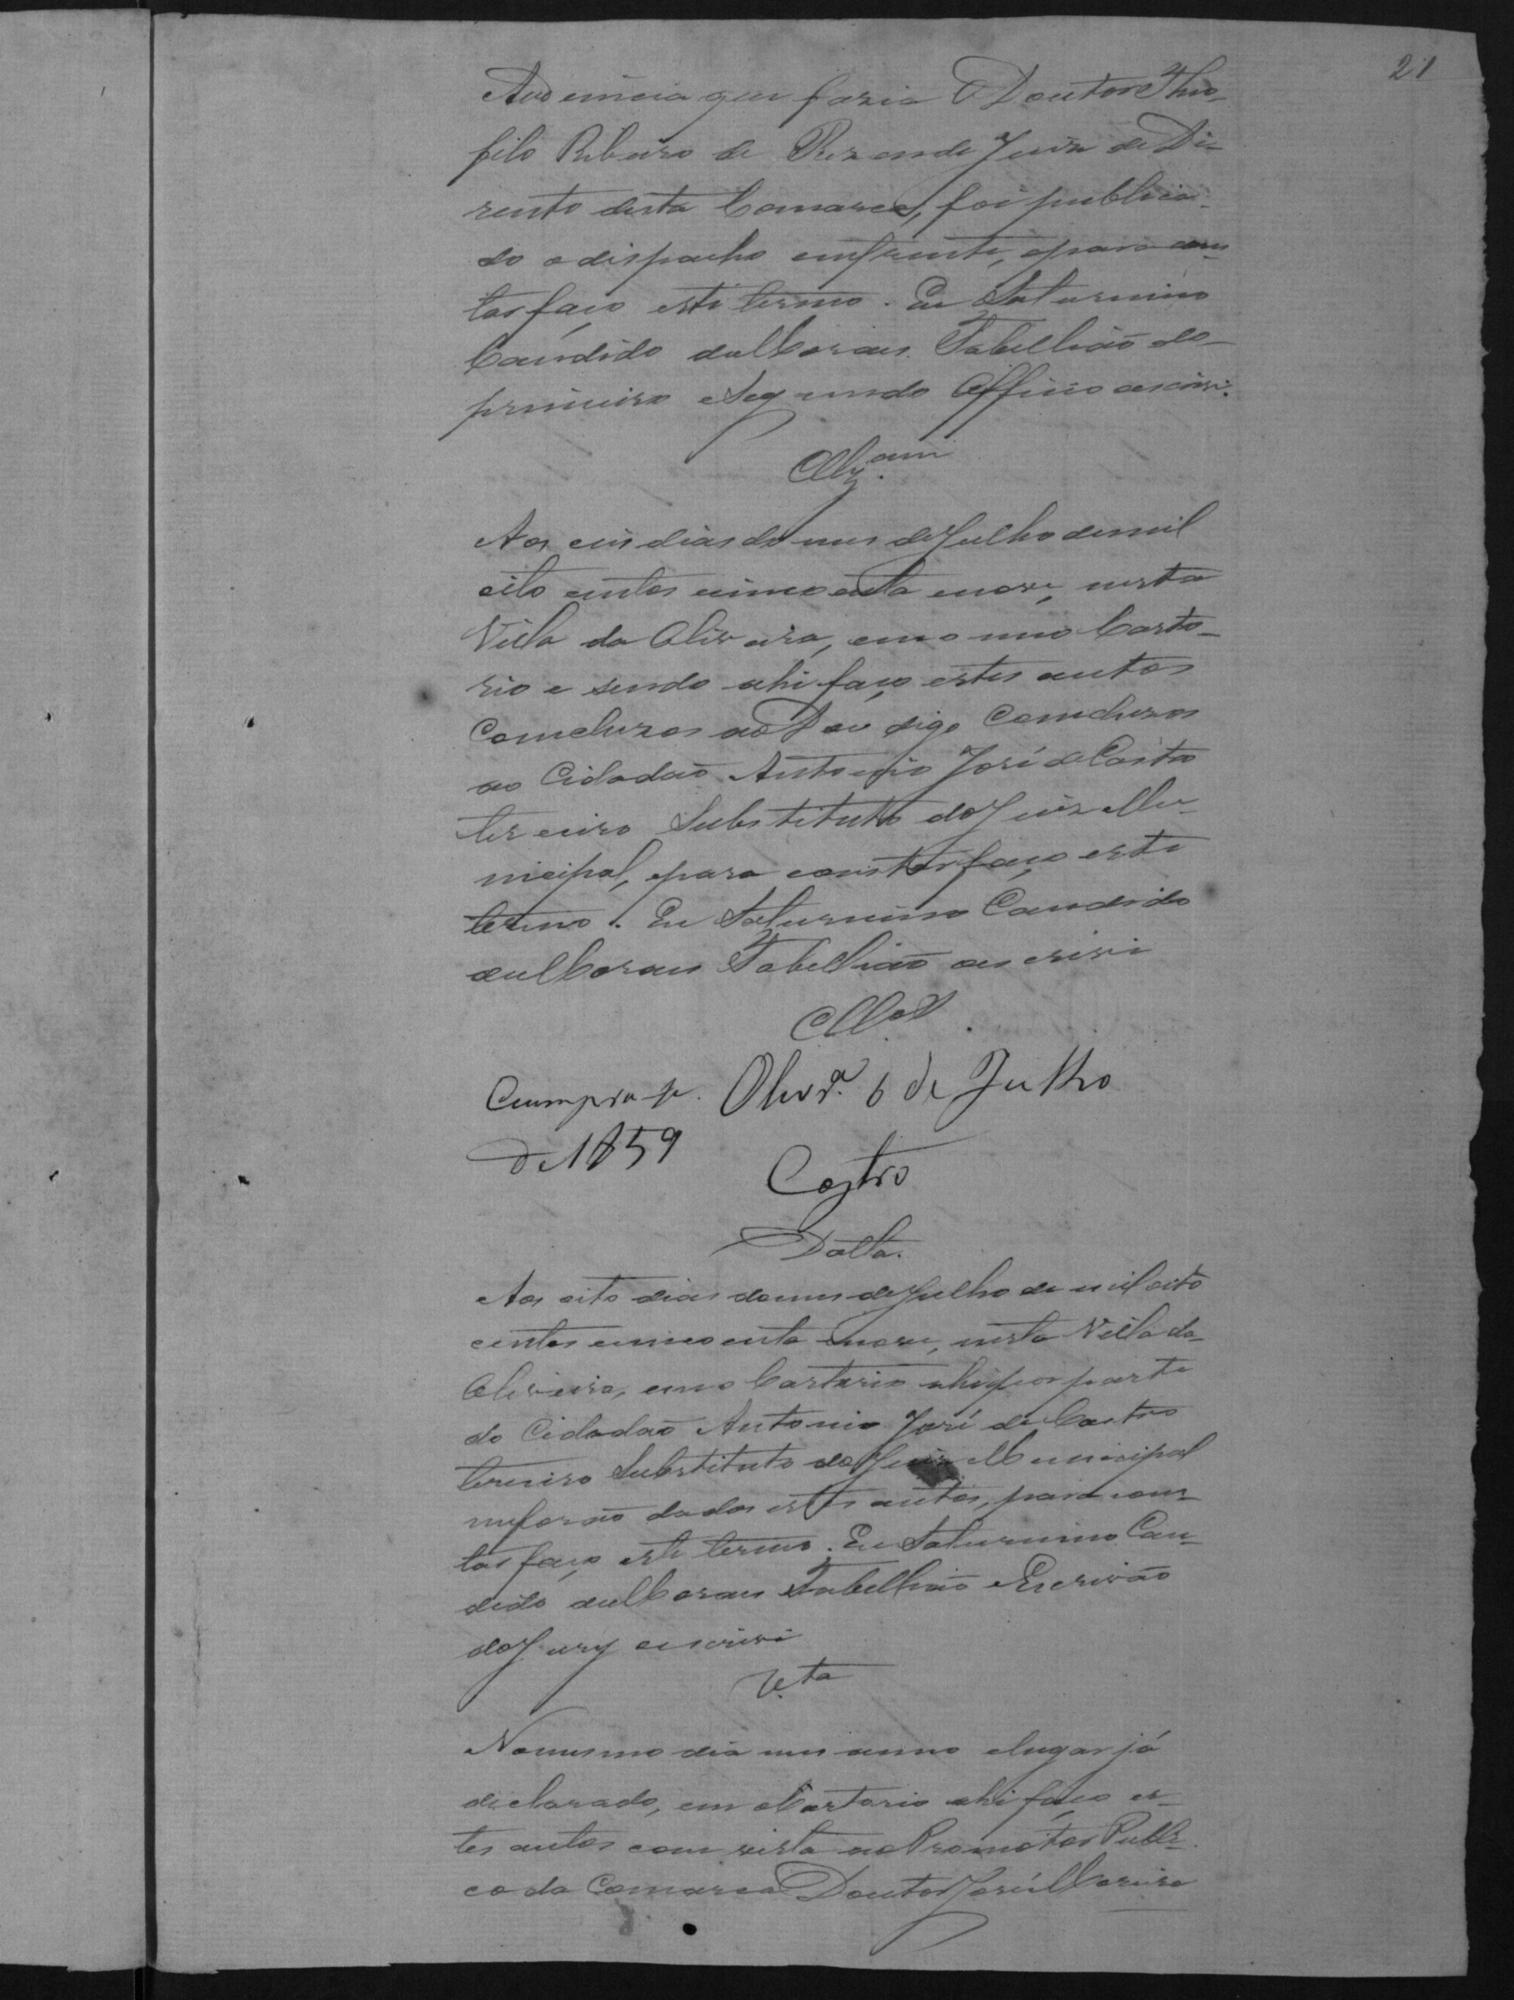 21
Audiencia que fazia o Doutor Theo-
filo Ribeiro de Rezende Juiz de Di-
reito desta Comarca, foi publica-
do o dispacho emfrente, epara cons-
tar faço este termo. Eu Saturnino
Candido de Moraes Tabellião do
primeiro eSegundo Officio oescrivi.
Aos seis dias do mes de Julho de mil
oito centos cincoenta enove, nesta
Villa da Oliveira, em o meo Carto-
rio e sendo ahi faço estes autos
Comcluzos ao Dou digo Comcluzos
ao Cidadão Antonio José de Castro
terceiro Substituto do Juiz Mu-
nicipal, epara constar faço este
termo. Eu Saturnino Candido
de Moraes Tabellião oescrivi
Cumpra se. Olivrª. 6 de Julho
de 1859
Castro
Datta.
Aos oito dias domes deJulho de mil oito
centos cincoenta enove, nesta Villa da
Oliveira, em o Cartorio ahi por parte
do Cidadão Antonio José de Castro
terceiro Substituto do Juiz Municipal
me forão dados estes autos, para cons-
tar faço este termo. Eu Saturnino Can-
dido de Moraes Tabellião eEscrivão
doJury oescrivi
V.ta
Nomesmo dia mes anno elugar já
declarado, em oCartorio ahi faço es-
tes autos com vista aoPromotor Publi-
co da Comarca Doutor José Moreira